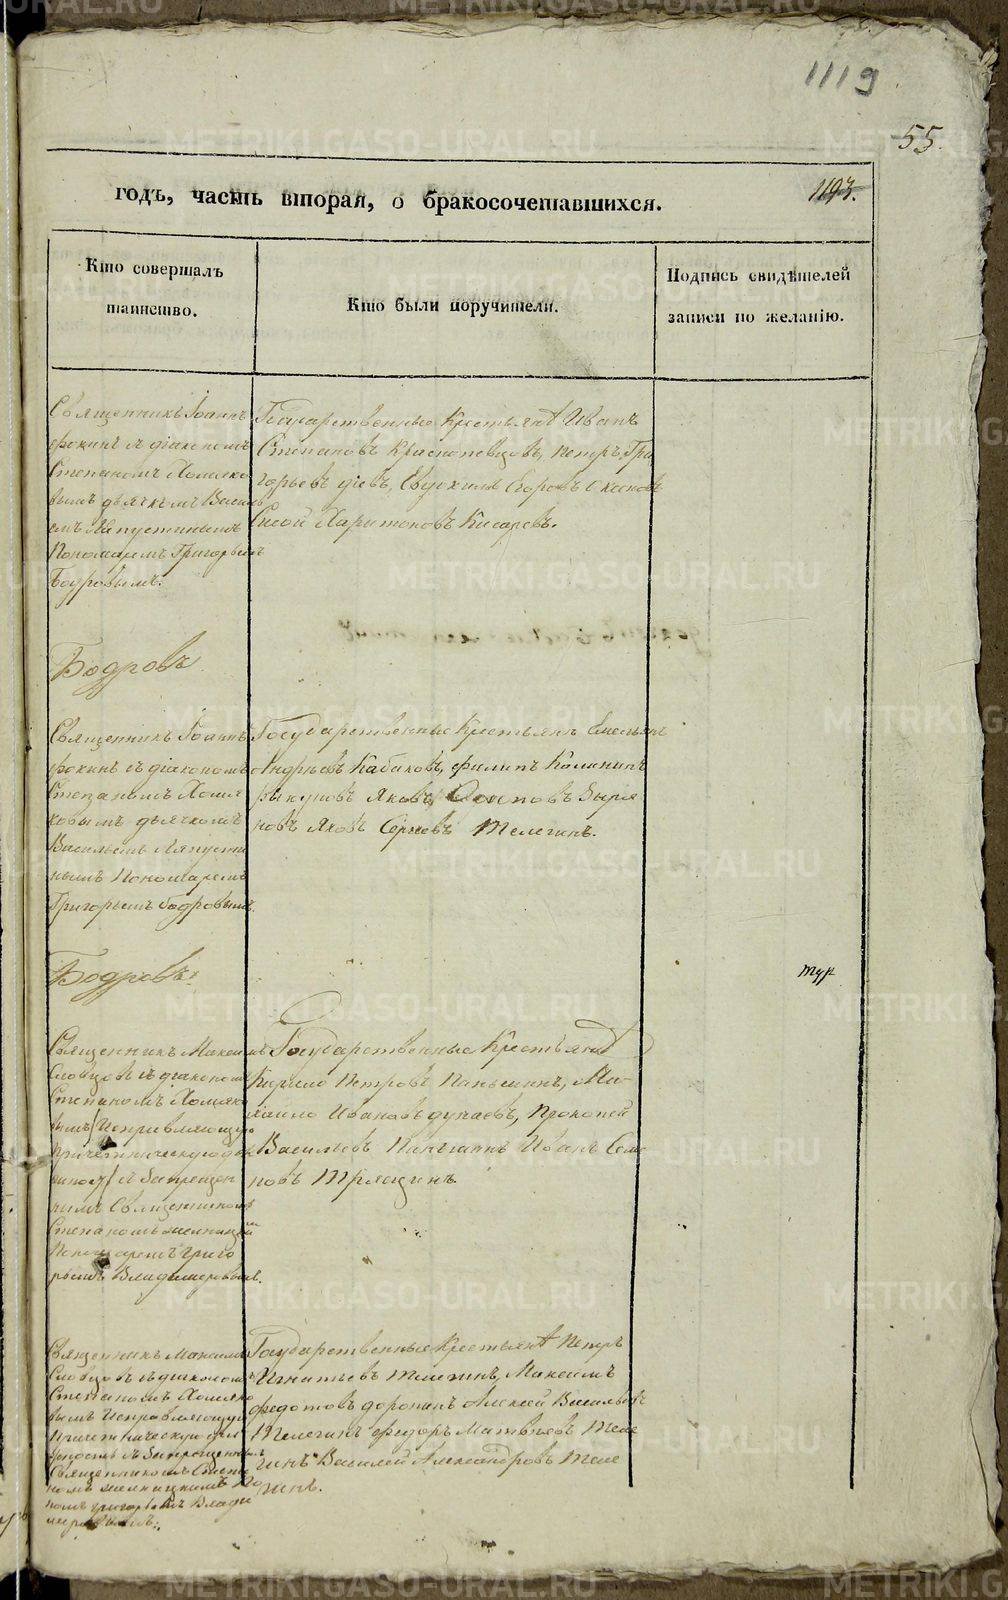 1119
55.
годъ, часть вторая, о бракосочетавшихся.
1193.
Кто совершалъ
таинство.
Кто были поручители.
Подпись свидѣтелей
записи по желанію.
Священникъ Іоаннъ
фокинъ съ діакономъ
Степаномъ Хомяко
вымъ дьячкомъ Василь
емъ Ляпустинымъ
Пономаремъ Григорьемъ
Бодровымъ.
Государственные Крестьянѣ Иванъ
Степановъ Краснопевцовъ, Петръ Гри
горьевъ Евдокимъ Егоровъ
Сысой Харитоновъ Кисаревъ.
Бодровъ
Священникъ Іоаннъ
фокинъ съ діакономъ
Степаномъ Хомя
ковымъ дьячкомъ
Васильемъ Ляпусти
нымъ Пономаремъ
Григорьемъ бодровымъ.
Государственные Крестьянѣ Емельянъ
Андреевъ Кабаковъ, филипъ Калининъ
Яковъ Осиповъ Зыря
новъ Яковъ Сергеевъ Телегинъ.
Бодровъ
тур
Священникъ Максимъ
Словцовъ съ діакономъ
Степаномъ Хомяко
вымъ Исправляющую
причетническую дол
съ Запрещен
нымъ Священникомъ
Степаномъ
Пономаремъ Григо
рьемъ Владимеровымъ.
Государственные Крестьянѣ
Кирило Петровъ Паньшинъ, Ми-
хайло Ивановъ дунаевъ, Прокопей
Васильевъ Паньшинъ Иванъ Семе
новъ Трясцинъ.
Священникъ Максимъ
Словцовъ съ діакономъ
Степаномъ Хомяко
вымъ Исправляющую
Причетническую дол
съ Запрещеннымъ
Священникомъ Степа
номъ По
номъ Григорьемъ Влади
меровымъ.
Государственные Крестьянѣ Петръ
Игнатьевъ Телегинъ, Максимъ
федотовъ доронинъ Алексей Васильевъ
Телегинъ федоръ Матвеевъ Теле
гинъ Василей Александровъ Теле
гинъ.